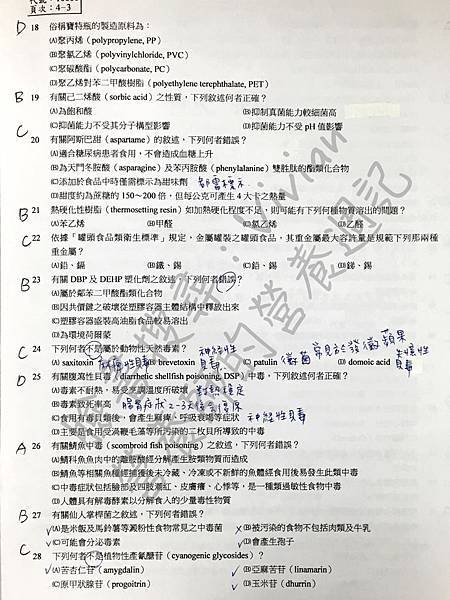 頁次：4-3
D 18 俗稱寶特瓶的製造原料為：
(A)聚丙烯（polypropylene, PP）
(B)聚氯乙烯（polyvinylchloride, PVC）
(C)聚碳酸酯（polycarbonate, PC）
(D)聚乙烯對苯二甲酸樹脂（polyethylene terephthalate, PET）
B 19 有關己二烯酸（sorbic acid）之性質，下列敘述何者正確？
(A)為飽和酸 (B)抑制真菌能力較細菌高
(C)抑菌能力不受其分子構型影響 (D)抑菌能力不受 pH 值影響
C 20 有關阿斯巴甜（aspartame）的敘述，下列何者錯誤？
(A)適合糖尿病患者食用，不會造成血糖上升
(B)為天門冬胺酸（asparagine）及苯丙胺酸（phenylalanine）雙胜肽的酯類化合物
(C)添加於食品中時僅需標示為甜味劑
(D)甜度約為蔗糖的 150～200 倍，但每公克可產生 4 大卡之熱量
B 21 熱硬化性樹脂（thermosetting resin）如加熱硬化程度不足，則可能有下列何種物質溶出的問題？
(A)苯乙烯 (B)甲醛 (C)氯乙烯 (D)乙醛
C 22 依據「罐頭食品類衛生標準」規定，金屬罐裝之罐頭食品，其重金屬最大容許量是規範下列那兩種
重金屬？
(A)鉛、鎘 (B)鐵、錫 (C)鉛、錫 (D)銻、錫
B 23 有關 DBP 及 DEHP 塑化劑之敘述，下列何者錯誤？
(A)屬於鄰苯二甲酸酯類化合物
(B)因共價鍵之破壞從塑膠容器主體結構中釋放出來
(C)塑膠容器盛裝高油脂食品較易溶出
(D)為環境荷爾蒙
C 24 下列何者不是屬於動物性天然毒素？ 神經性貝毒 黴菌 常見於發霉蘋果
(A) saxitoxin (B) brevetoxin (C) patulin (D) domoic acid
D 25 有關腹瀉性貝毒（diarrhetic shellfish poisoning, DSP）中毒，下列敘述何者正確？
(A)毒素不耐熱，易受烹調溫度所破壞 對熱穩定
(B)毒素致死率高
(C)食用有毒貝類後，會產生麻痺、呼吸衰竭等症狀 神經性貝毒
(D)主要是食用受渦鞭毛藻等所污染的二枚貝所導致的中毒
A 26 有關鯖魚中毒（scombroid fish poisoning）之敘述，下列何者錯誤？
(A)鯖科魚魚肉中的離胺酸經分解產生胺類物質而造成
(B)鯖魚等相關魚種經捕獲後未冷藏、冷凍或不新鮮的魚體經食用後易發生此類中毒
(C)中毒症狀包括臉部及四肢潮紅、皮膚癢、心悸等，是一種類過敏性食物中毒
(D)人體具有解毒酵素以分解食入的少量毒性物質
B 27 有關仙人掌桿菌之敘述，下列何者錯誤？
(A)是米飯及馬鈴薯等澱粉性食物常見之中毒菌 (B)被污染的食物不包括肉類及牛乳
(C)可能會分泌毒素 (D)會產生孢子
C 28 下列何者不是植物性產氰醣苷（cyanogenic glycosides）？
(A)苦杏仁苷（amygdalin） (B)亞麻苦苷（linamarin）
(C)原甲狀腺苷（progoitrin） (D)玉米苷（dhurrin）